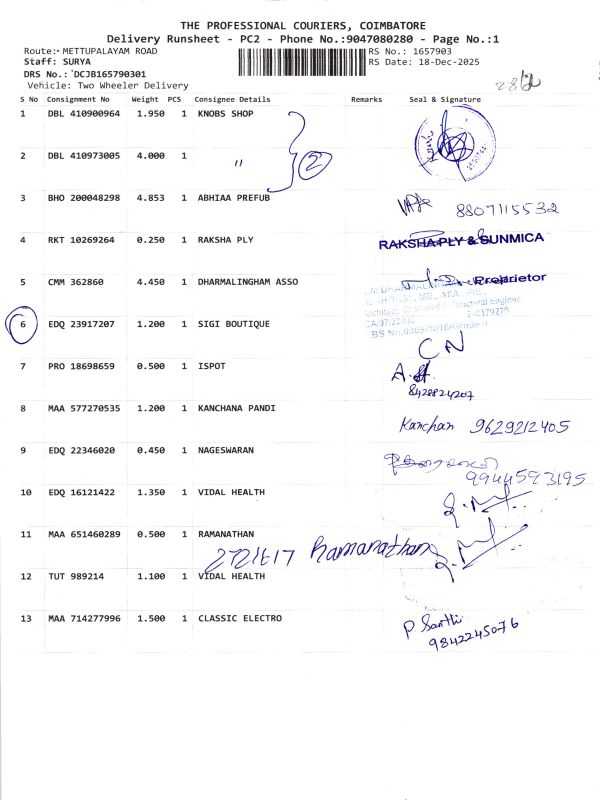 THE PROFESSIONAL COURIERS, COIMBATORE
Delivery Runsheet - PC2 - Phone No.:9047080280 - Page No.:1
Route: METTUPALAYAM ROAD RS No.: 1657903
Staff: SURYA RS Date: 18-Dec-2025
DRS No.: DCJB165790301
Vehicle: Two Wheeler Delivery
S No Consignment No Weight PCS Consignee Details Remarks Seal & Signature
1 DBL 410900964 1.950 1 KNOBS SHOP
2 DBL 410973005 4.000 1 " 2
3 BHO 200048298 4.853 1 ABHIAA PREFUB 8807115532
4 RKT 10269264 0.250 1 RAKSHA PLY RAKSHA PLY & SUNMICA
Proprietor
5 CMM 362860 4.450 1 DHARMALINGHAM ASSO
6 EDQ 23917207 1.200 1 SIGI BOUTIQUE
CN
7 PRO 18698659 0.500 1 ISPOT
8428824207
8 MAA 577270535 1.200 1 KANCHANA PANDI
Kanchan 9629212405
9 EDQ 22346020 0.450 1 NAGESWARAN
9944593195
10 EDQ 16121422 1.350 1 VIDAL HEALTH
11 MAA 651460289 0.500 1 RAMANATHAN
Ramanathan
12 TUT 989214 1.100 1 VIDAL HEALTH
13 MAA 714277996 1.500 1 CLASSIC ELECTRO
P Santhi
9842245076